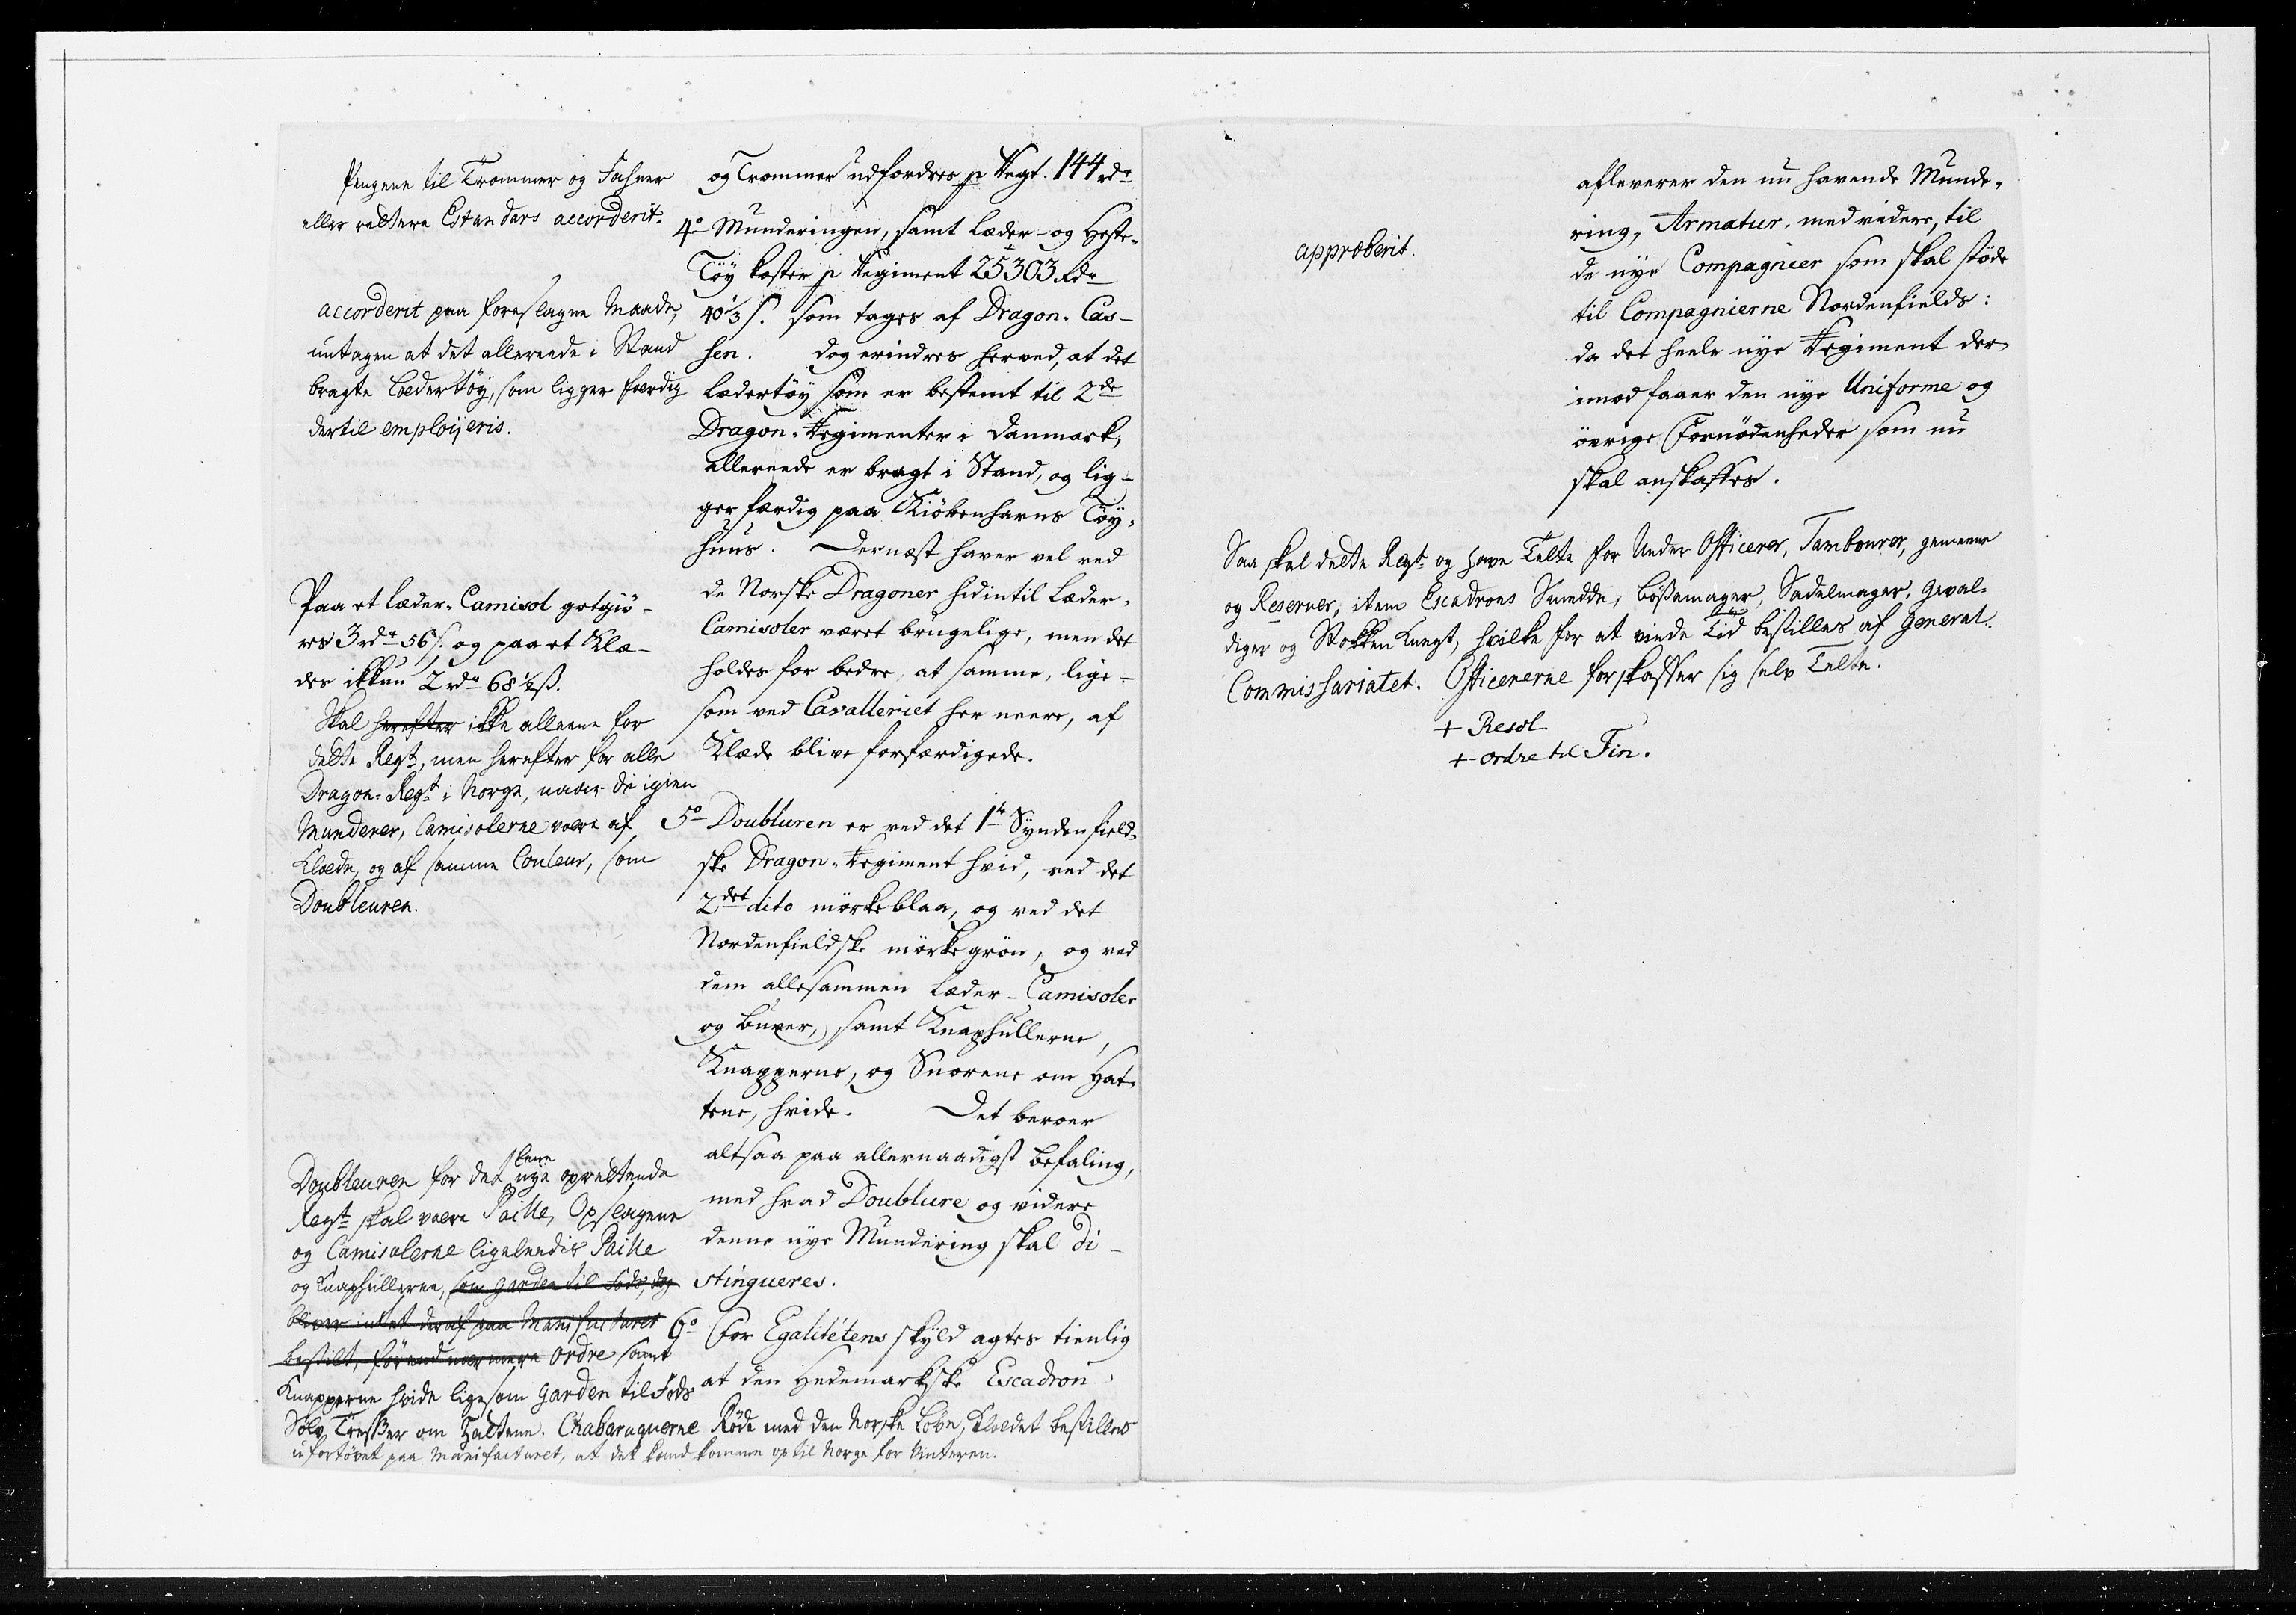 Pengene til Trommer og Fahner
eller rettere Estandars accorderit.
accorderit paa foreslagne Maade,
untagen at det allereede i Stand
bragte Lædertöy, som ligger færdig
dertil employeris.
Paa et Læder-Camisol gotgiö-
res 3 rdr 56 s. og paa et Klæ-
des ikkun 2 rdr 68 1/2 ß.
Skal herefter ikke alleene for
dette Regt, men herefter for alle
Dragon-Regt i Norge, naar de igien
Munderer, Camisolerne være af
Klæde, og af samme Couleur, som
Doubleuren.
Doubleuren for det nye oprettende
Regt skal være Paille, Opslagene
og Camisolerne ligeleedis Paille
og Knaphullerne, som Garden til Fods, dog
bliver intet deraf paa Manifacturet
bestilt, förend nærmere Ordre samt
Knapperne hvide ligesom Garden til Fods
Sölv Tresser om Hattene. Chabaraquerne Röde med den Norske Löve, Klædet bestilles
ufortövet paa Manifacturet, at det kand komme op til Norge for Vinteren.
og Trommer udfordres p Regt. 144 rdr
4o Munderingen, samt Læder- og Heste-
Töy koster p Regiment 25303 Rdr
40 1/3 s. som tages af Dragon-Cas-
sen. Dog erindres herved, at det
Lædertöy som er bestemt til 2de
Dragon-Regimenter i Danmark,
allereede er bragt i Stand, og lig-
ger færdig paa Kiöbenhavns Töy-
huus. Dernæst haver vel ved
de Norske Dragoner hidindtil Læder-
Camisoler været brugelige, men det
holdes for bedre, at samme, lige-
som ved Cavalleriet her neere, af
Klæde blive forfærdigede.
5o Doubluren er ved det 1te Syndenfield-
ske Dragon-Regiment hvid, ved det
2det dito mörkeblaa, og ved det
Nordenfieldske mörkegrön, og ved
dem allesammen Læder-Camisoler
og Buxer, samt Knaphullerne,
Knapperne, og Snorene om Hat-
tene, hvide. Det beroer
altsaa paa allernaadigst Befaling,
med hvad Doublure og videre
denne nye Mundering skal di-
stingueres.
6o For Egalitétens skyld agtes tienlig
at den Hedemarkske Escadron
afleverer den nu havende Munde-
ring, Armatur, med videre, til
de nye Compagnier som skal stöde
til Compagnierne Nordenfields:
da det heele nye Regiment der-
imod faaer den nye Uniforme og
övrige Fornödenheder som nu
skal anskaffes.
approberit.
Saa skal dette Regt og have Telte for Under Officerer, Tambourer, gemeene
og Reserver, item Escadrons Smedde, Bössemager, Sadelmager, Geval-
diger og Stokken Knegt, hvilke for at vinde Tid bestilles af General-
Commissariatet. Officererne forskaffer sig selv Telte.
+ Resol
+ ordre til Fin.